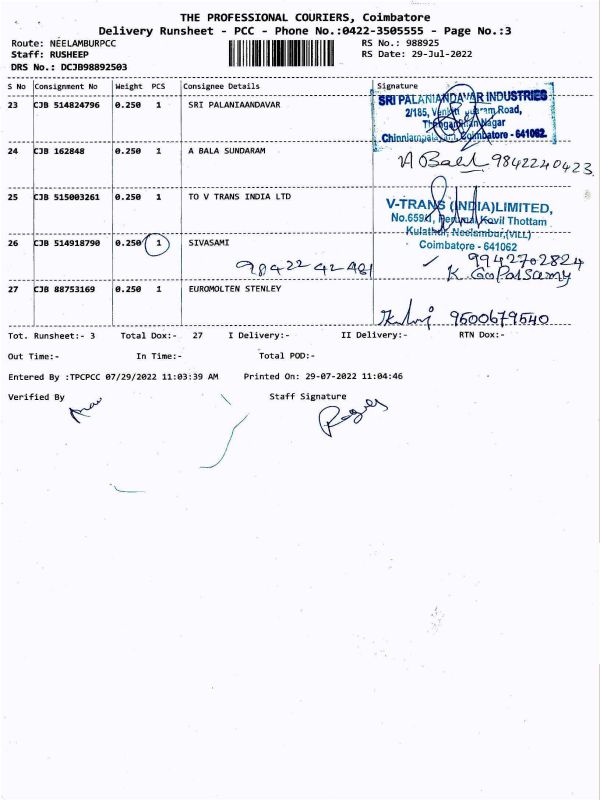 THE PROFESSIONAL COURIERS, Coimbatore
Delivery Runsheet - PCC - Phone No.:0422-3505555 - Page No.:3
Route: NEELAMBURPCC RS No.: 988925
Staff: RUSHEEP RS Date: 29-Jul-2022
DRS No.: DCJB98892503
S No Consignment No Weight PCS Consignee Details Signature
23 CJB 514824796 0.250 1 SRI PALANIAANDAVAR
SRI PALANIANDAVAR INDUSTRIES
2/185, Road,
Nagar
Coimbatore - 641062.
24 CJB 162848 0.250 1 A BALA SUNDARAM
A Bala 9842240423
25 CJB 515003261 0.250 1 TO V TRANS INDIA LTD
V-TRANS (INDIA)LIMITED,
No.659/1, Perumal Kovil Thottam
Kulathur, Neelambur,(VILL)
Coimbatore - 641062
26 CJB 514918790 0.250 1 SIVASAMI
9942702824
98422 42481 K. Gopalsamy
27 CJB 88753169 0.250 1 EUROMOLTEN STENLEY
9500679540
Tot. Runsheet:- 3 Total Dox:- 27 I Delivery:- II Delivery:- RTN Dox:-
Out Time:- In Time:- Total POD:-
Entered By :TPCPCC 07/29/2022 11:03:39 AM Printed On: 29-07-2022 11:04:46
Verified By Staff Signature